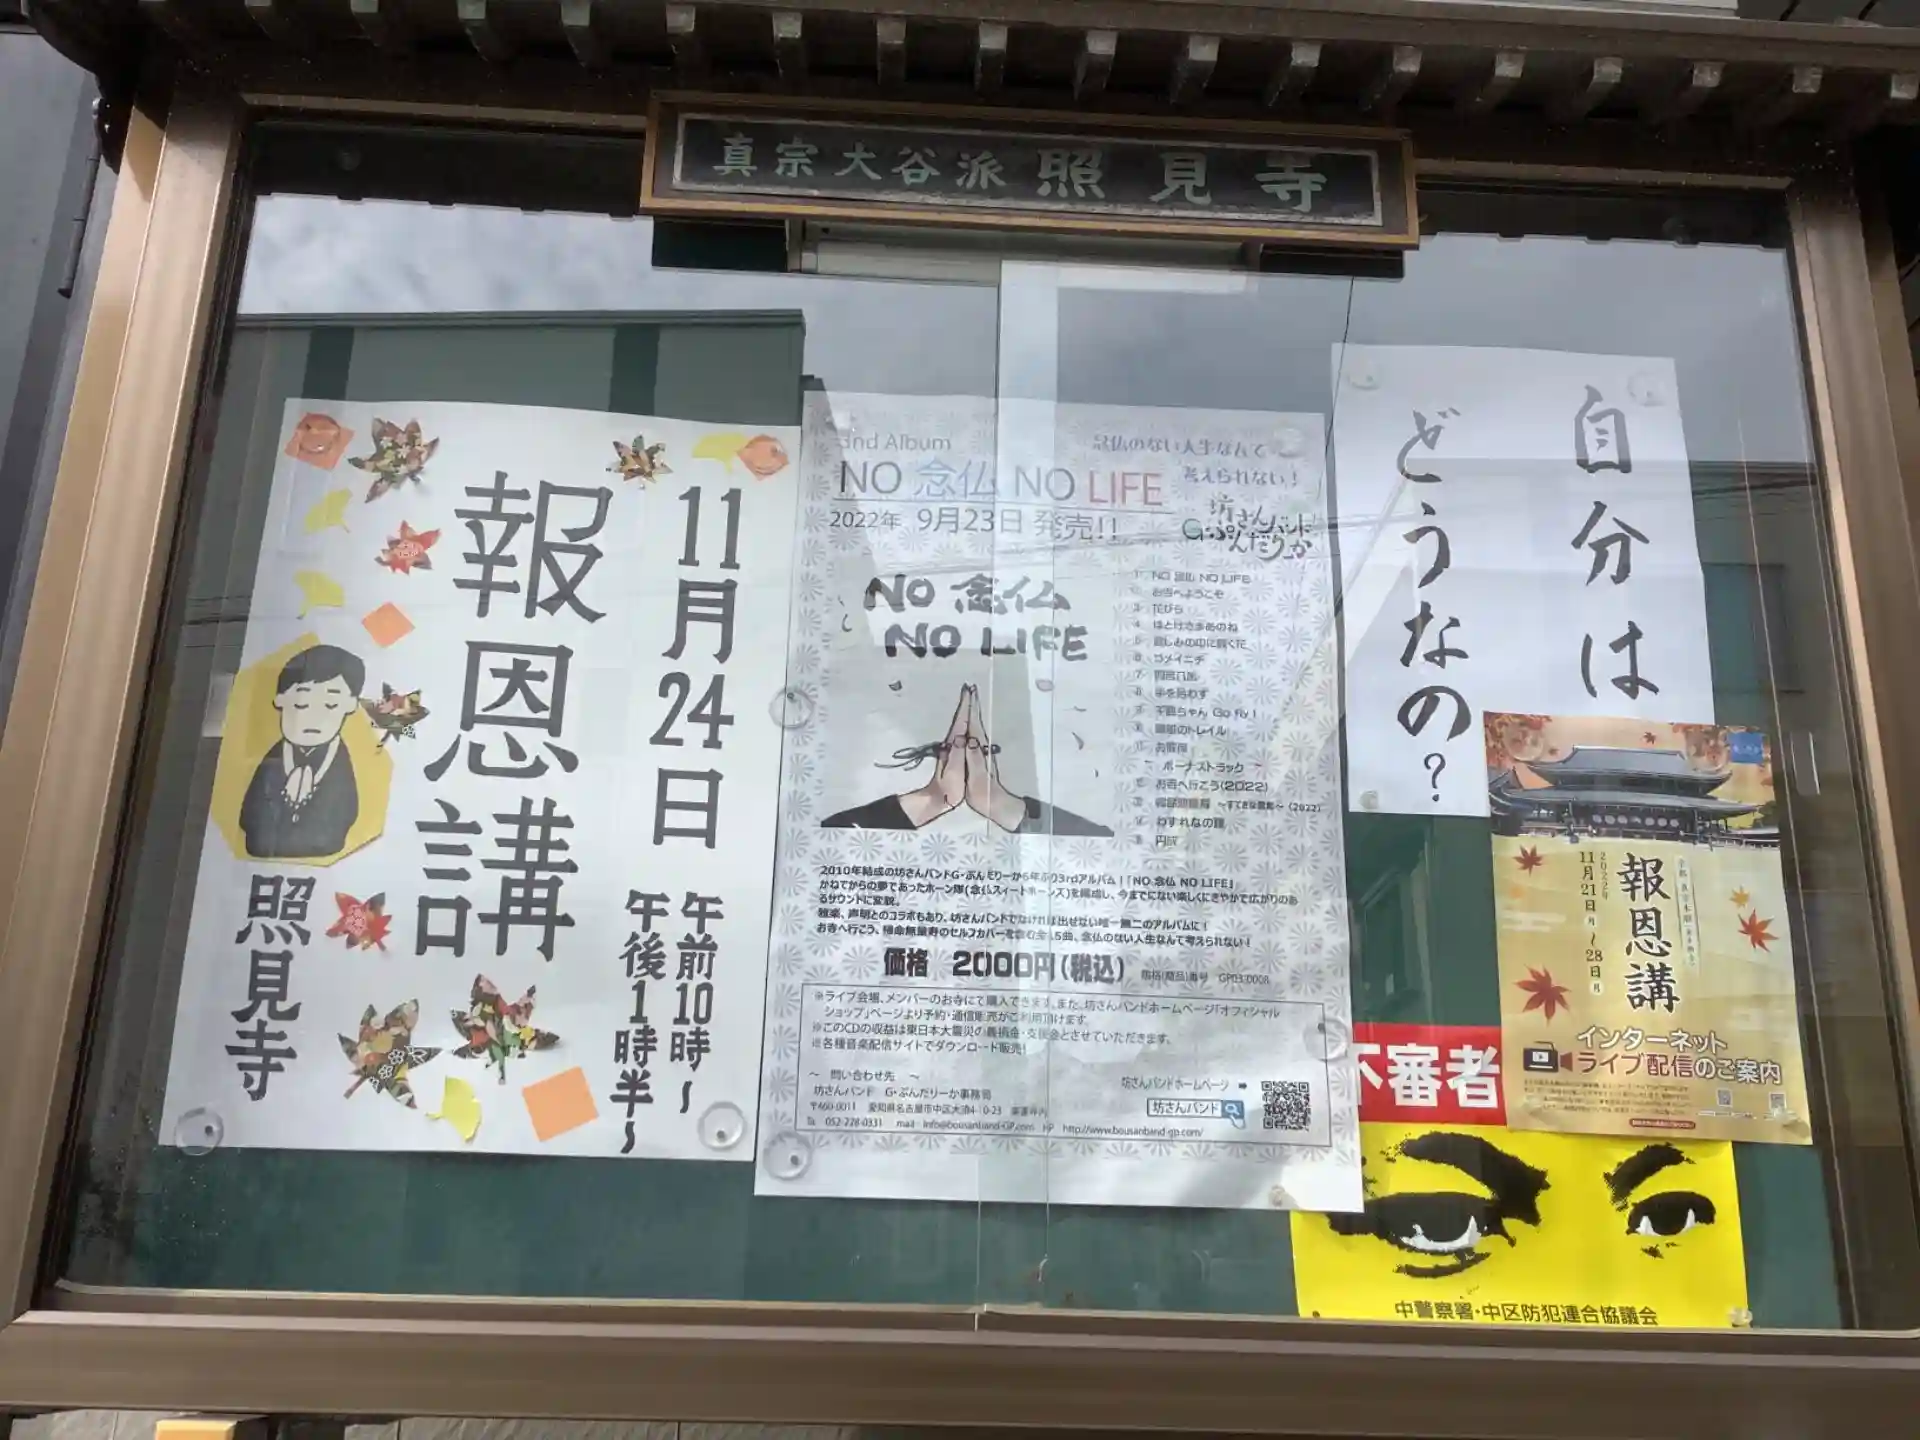 真宗大谷派 照見寺
11月24日
報恩講
午前10時～
午後1時半～
照見寺
3rd Album
NO 念仏 NO LIFE
2022年 9月23日 発売!!
念仏のない人生なんて
考えられない！
坊さんバンド
G・ぷんだりーか
NO 念仏
NO LIFE
1 NO 念仏 NO LIFE
2 お寺へようこそ
3 花びら
4 ほとけさまあのね
6 ゴメイニチ
8 手を合わす
ボーナストラック
12 お寺へ行こう(2022)
～すてきな世界～（2022）
14 わすれなの鐘
15 円成
2010年結成の坊さんバンドG・ぷんだりーか6年ぶり3rdアルバム！「NO 念仏 NO LIFE」
かねてからの夢であったホーン隊(念仏スィートホーンズ)を編成し、今までにない楽しくにぎやかで広がりのあ
るサウンドに変貌。
雅楽、声明とのコラボもあり、坊さんバンドでなければ出せない唯一無二のアルバムに！
お寺へ行こう、帰命無量寿のセルフカバーを含む全15曲、念仏のない人生なんて考えられない！
価格 2000円(税込) 規格(商品)番号 GP03-0008
※ライブ会場、メンバーのお寺にて購入できます。また、坊さんバンドホームページ「オフィシャル
ショップ」ページより予約・通信販売がご利用頂けます。
※このCDの収益は東日本大震災の義捐金・支援金とさせていただきます。
※各種音楽配信サイトでダウンロード販売！
～ 問い合わせ先 ～
坊さんバンド G・ぷんだりーか事務局
〒460-0011 愛知県名古屋市中区大須4-10-23
mail info@bousanband-GP.com HP http://www.bousanband-gp.com/
坊さんバンドホームページ
坊さんバンド
自分は
どうなの？
報恩講
2022年
11月21日月～28日月
インターネット
ライブ配信のご案内
不審者
中警察署・中区防犯連合協議会